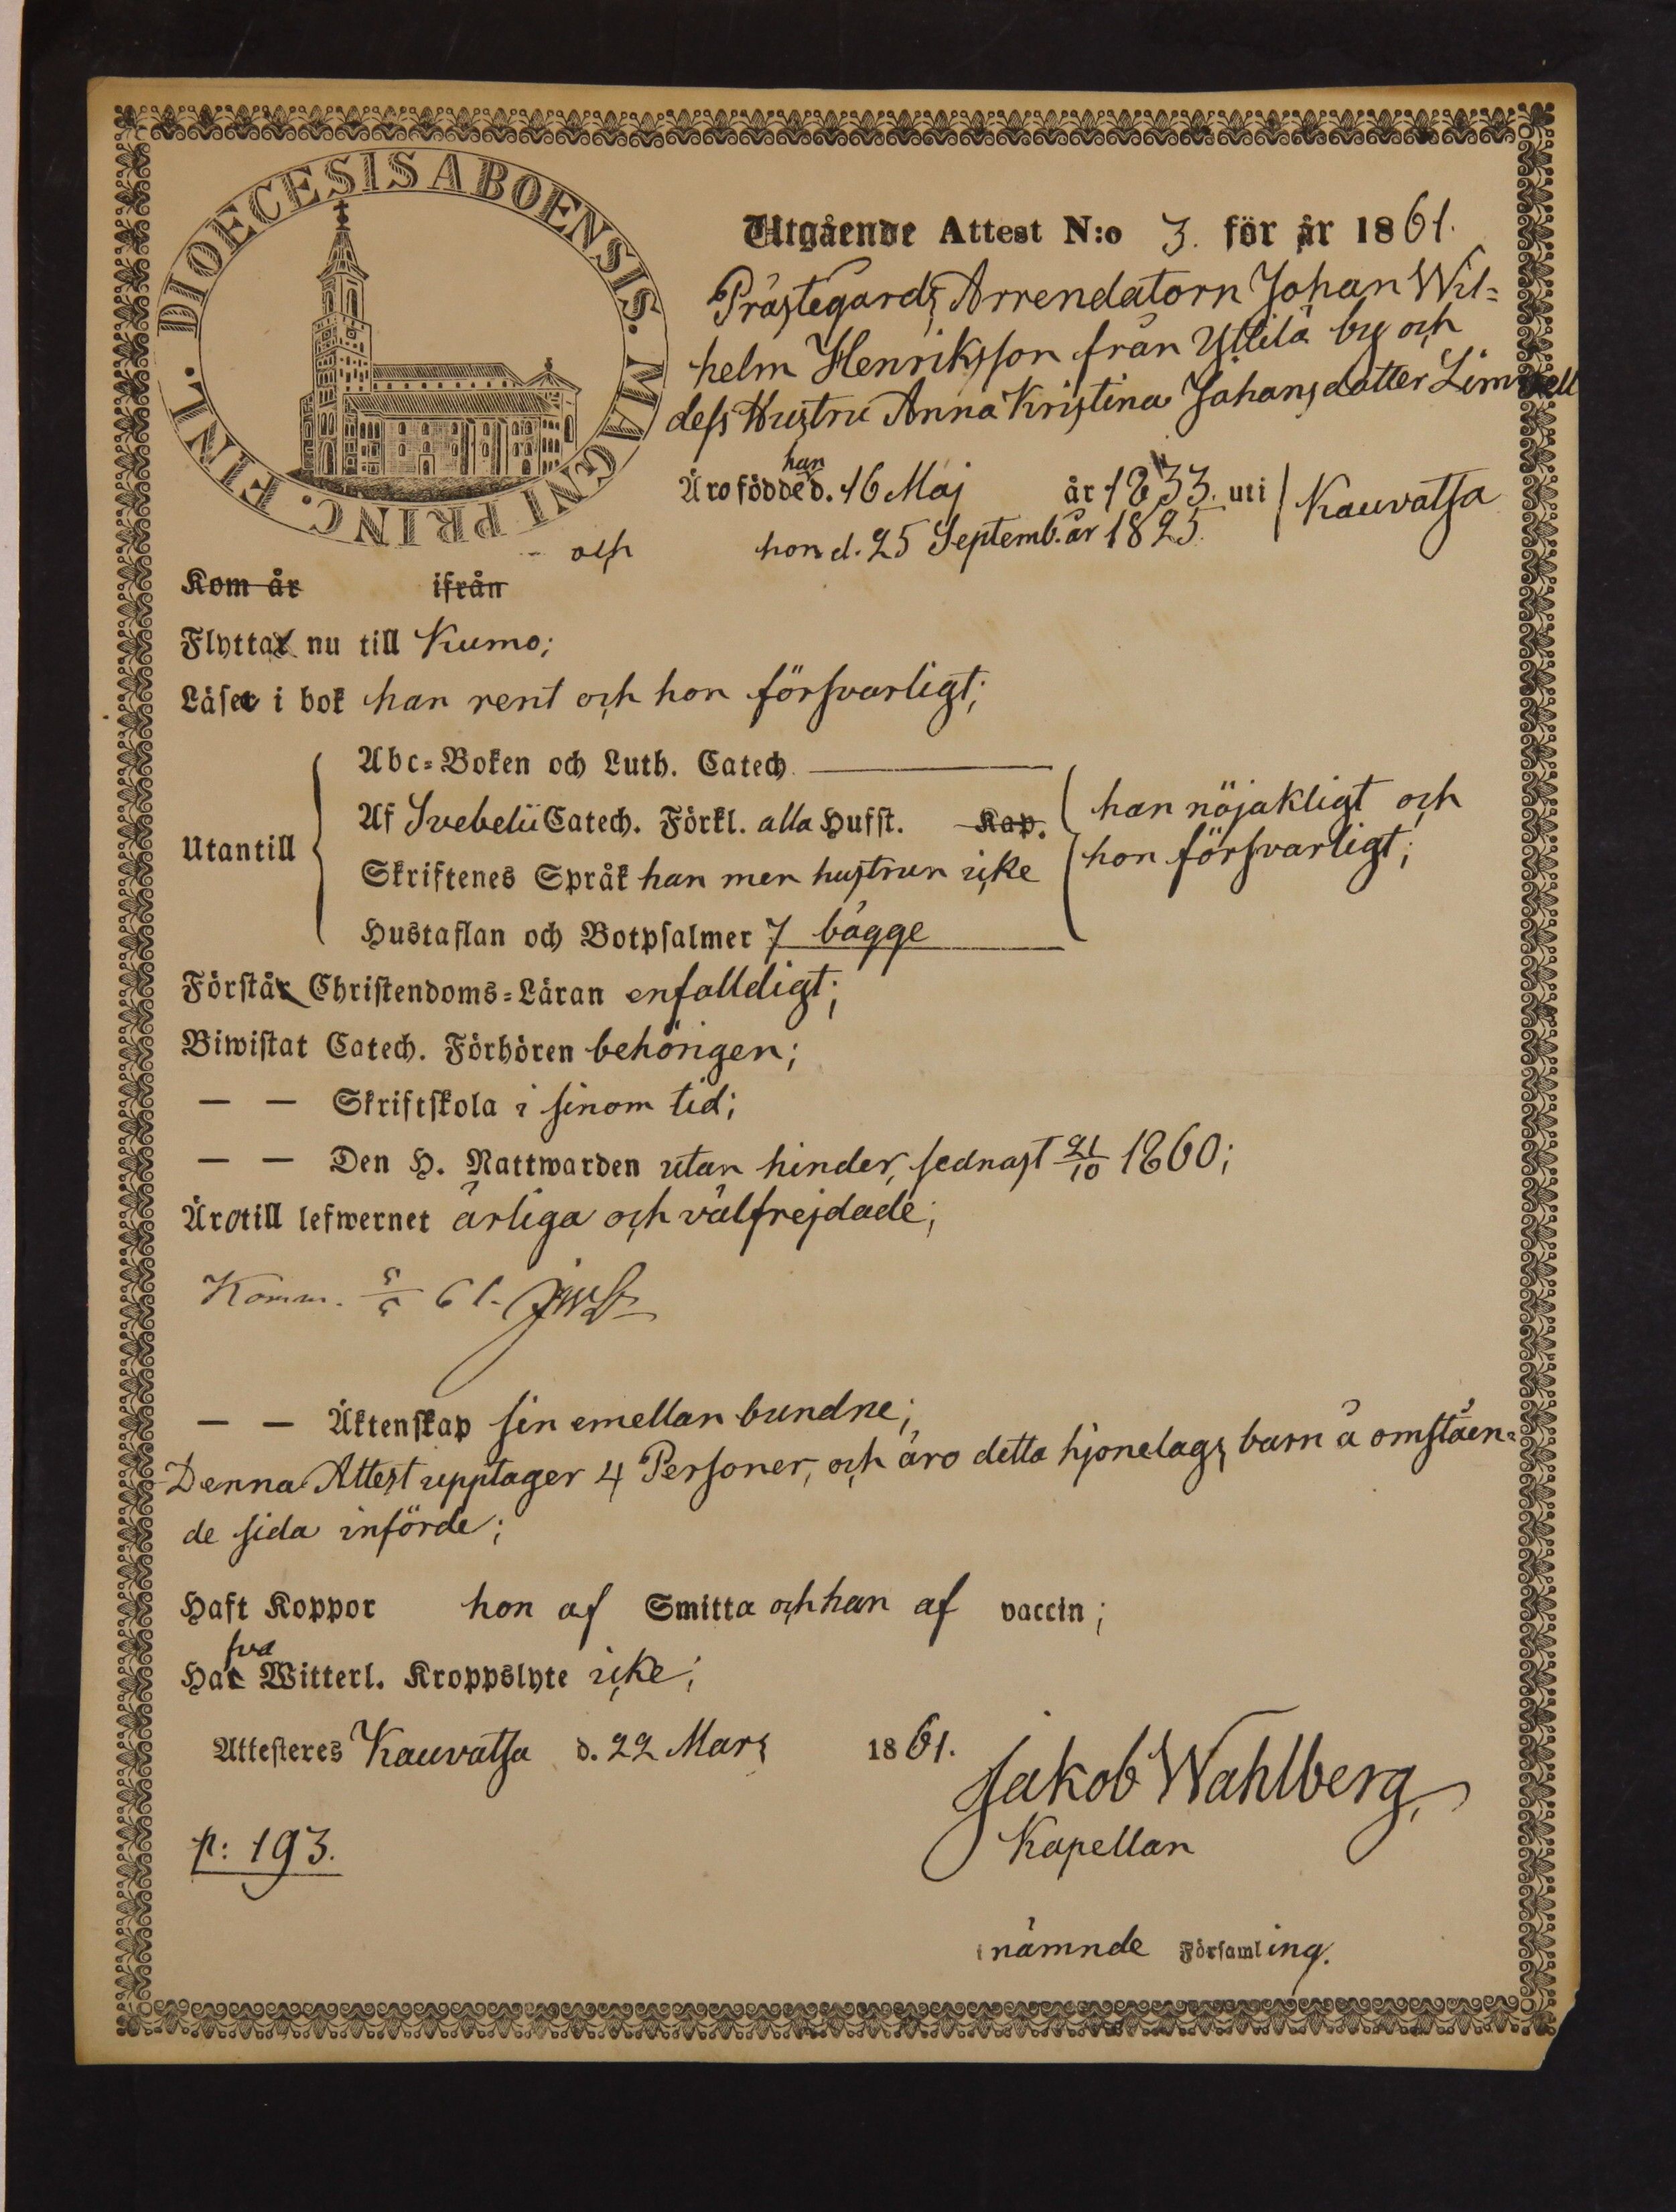 DIOECESIS ABOENSIS. MAGNI PRINC. FINL.
Utgående Attest N:o 3. för år 1861.
Prästegårds Arrendatorn Johan Wil=
helm Henriksson från Yttilä by och
dess Hustru Anna Kristina Johansdotter
han
Äro födde d. 16 Maj år 1833. uti Kauvatsa
och hon d. 25 Septemb. år 1825.
Kom år ifrån
Flytta nu till Kumo;
Läse i bok han rent och hon försvarligt;
Abc=Boken och Luth. Catech.
Af Svebelii Catech. Förkl. alla Hufst. Kap.
han nöjakligt och
Utantill
hon försvarligt;
Skriftenes Språk han men hustrun icke
Hustaflan och Botpsalmer 7 bägge
Förstå Christendoms=Läran enfalldigt;
Biwistat Catech. Förhören behörigen;
— — Skriftskola i sinom tid;
— — Den H. Nattwarden utan hinder, sednast 21/10 1860;
Äro till lefwernet ärliga och välfrejdade;
Komm. 61.
— — Äktenskap sin emellan bundne;
Denna Attest upptager 4 Personer, och äro detta hjonelags barn å omståen=
de sida införde;
Haft Koppor hon af Smitta och han af vaccin;
fva
Ha Witterl. Kroppslyte icke;
Attesteres Kauvatsa d. 22 Mars 1861.
Jakob Wahlberg,
p: 193.
Kapellan
i nämnde Församling.